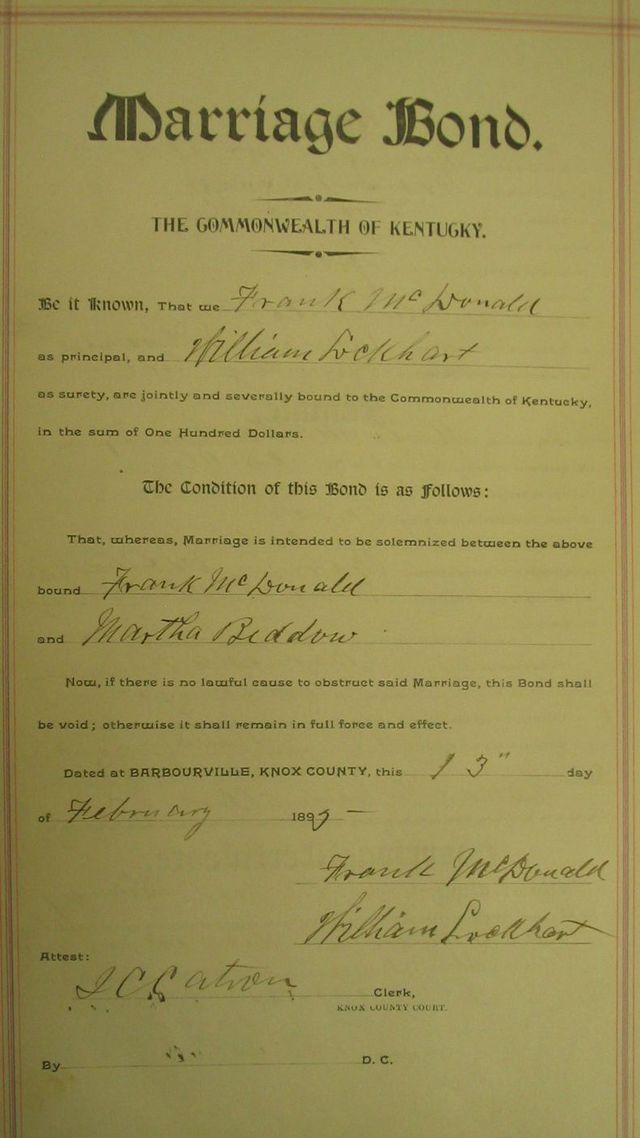 Marriage Bond.
THE COMMONWEALTH OF KENTUCKY.
Be it Known, That we Frank McDonald
as principal, and William Lockhart
as surety, are jointly and severally bound to the Commonwealth of Kentucky,
in the sum of One Hundred Dollars.
The Condition of this Bond is as Follows:
That, whereas, Marriage is intended to be solemnized between the above
bound Frank McDonald
and Martha Beddow
Now, if there is no lawful cause to obstruct said Marriage, this Bond shall
be void; otherwise it shall remain in full force and effect.
Dated at BARBOURVILLE, KNOX COUNTY, this 13" day
of February 189
Frank McDonald
William Lockhart
Attest:
Catron Clerk,
KNOX COUNTY COURT.
By D. C.